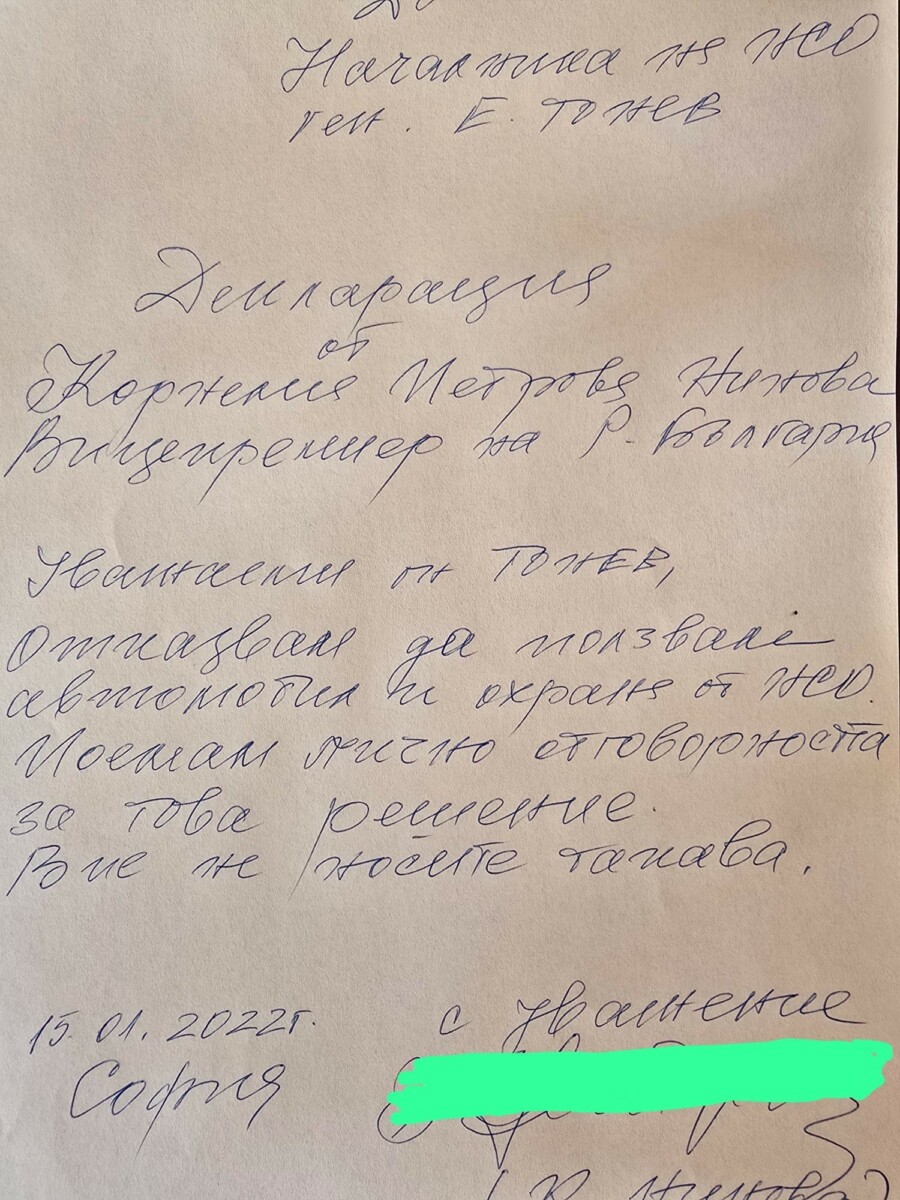 До
Началника на НСО
ген. Е. Тонев
Декларация
от
Корнелия Петрова Нинова
Вицепремиер на Р. България
Уважаеми г-н Тонев,
Отказвам да ползвам
автомобил и охрана от НСО.
Поемам лично отговорността
за това решение.
Вие не носите такава.
15.01.2022г.
с уважение
София
(К. Нинова)